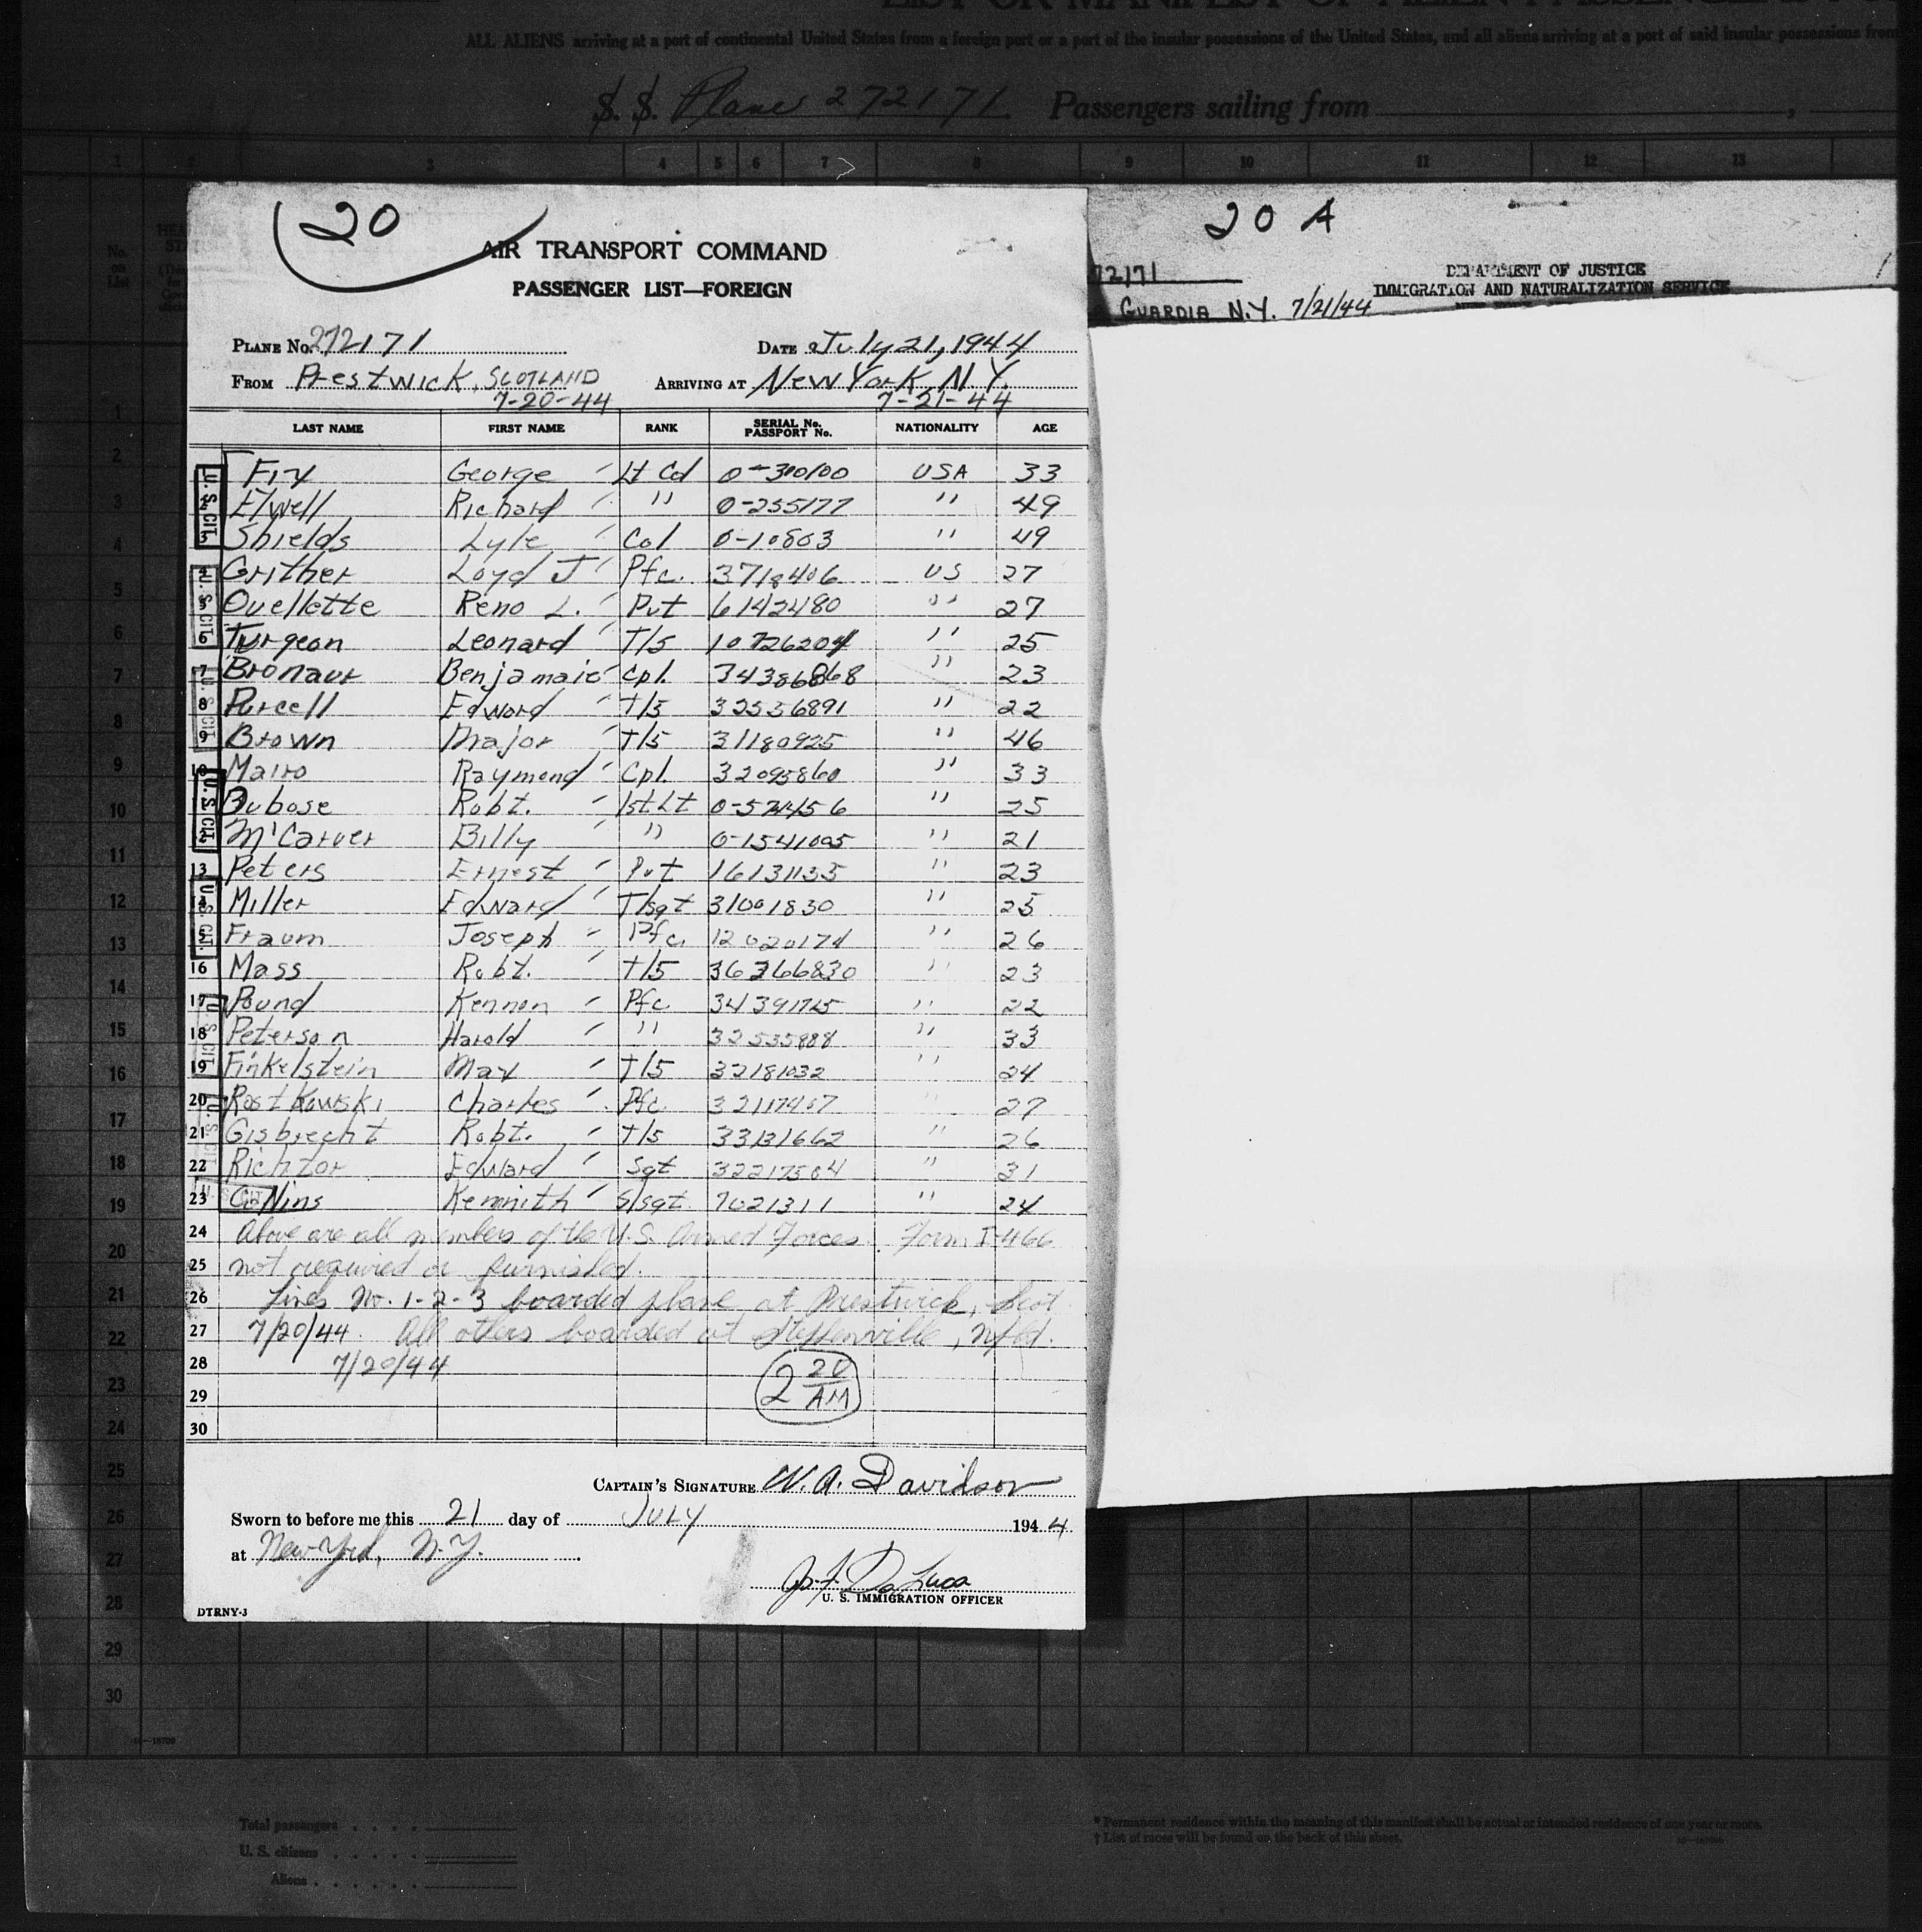 ALL ALIENS arriving at a port of continental United States from a foreign port or a port of the insular possessions of the United States, and all aliens arriving at a port of said insular possessions from
S. S. Plane 272171 Passengers sailing from
1 2 3 4 5 6 7 8 9 10 11 12 13
20
AIR TRANSPORT COMMAND
PASSENGER LIST—FOREIGN
PLANE No. 272171 DATE July 21, 1944
FROM Prestwick, SCOTLAND ARRIVING AT New York, N.Y.
7-20-44 7-21-44
LAST NAME FIRST NAME RANK SERIAL No. PASSPORT No. NATIONALITY AGE
Fix George Lt Col USA 33
Elwell Richard " 0-255177 " 49
Shields Lyle Col 0-10803 " 49
4 Grither Loyd J Pfc. US 27
5 Ouellette Reno L. Pvt 6142480 " 27
6 Turgeon Leonard T/5 10726204 " 25
7 Cpl. 34386868 " 23
8 Purcell Edward T/5 32536891 " 22
9 Brown Major T/5 31180925 " 46
10 Mairo Raymond Cpl. 32095860 " 33
Dubose Robt. 1st Lt " 25
McCarver Billy " 0-1541005 " 21
13 Peters Ernest Pvt 16131135 " 23
14 Miller Edward T/sgt 31001830 " 25
15 Fraum Joseph Pfc. 12020174 " 26
16 Mass Robt. T/5 36366830 " 23
17 Pound Kennon Pfc 34391725 " 22
18 Peterson Harold " 32535888 " 33
19 Finkelstein Max T/5 32181032 " 24
20 Rostkowski Charles Pfc. 32117407 " 27
21 Gisbrecht Robt. T/5 33131662 " 26
22 Richtor Edward Sgt 32217504 " 31
23 Collins Kennith S/sgt. 7021311 " 24
24 Above are all members of the U.S. Armed Forces. Form I-466
25 not required or furnished.
26 Lines No. 1-2-3 boarded plane at Prestwick, Scot
27 7/20/44. All others boarded at Stephenville, Nfld.
28 7/20/44
2 20 AM
29
30
CAPTAIN'S SIGNATURE W. A. Davidson
Sworn to before me this 21 day of JULY 1944
at New York, N.Y.
U. S. IMMIGRATION OFFICER
DTRNY-3
U. S. CIT.
20 A
72171
DEPARTMENT OF JUSTICE
IMMIGRATION AND NATURALIZATION SERVICE
GUARDIA N.Y. 7/21/44
No. on List
Total passengers
U. S. citizens
Aliens
* Permanent residence within the meaning of this manifest shall be actual or intended residence of one year or more.
† List of races will be found on the back of this sheet.